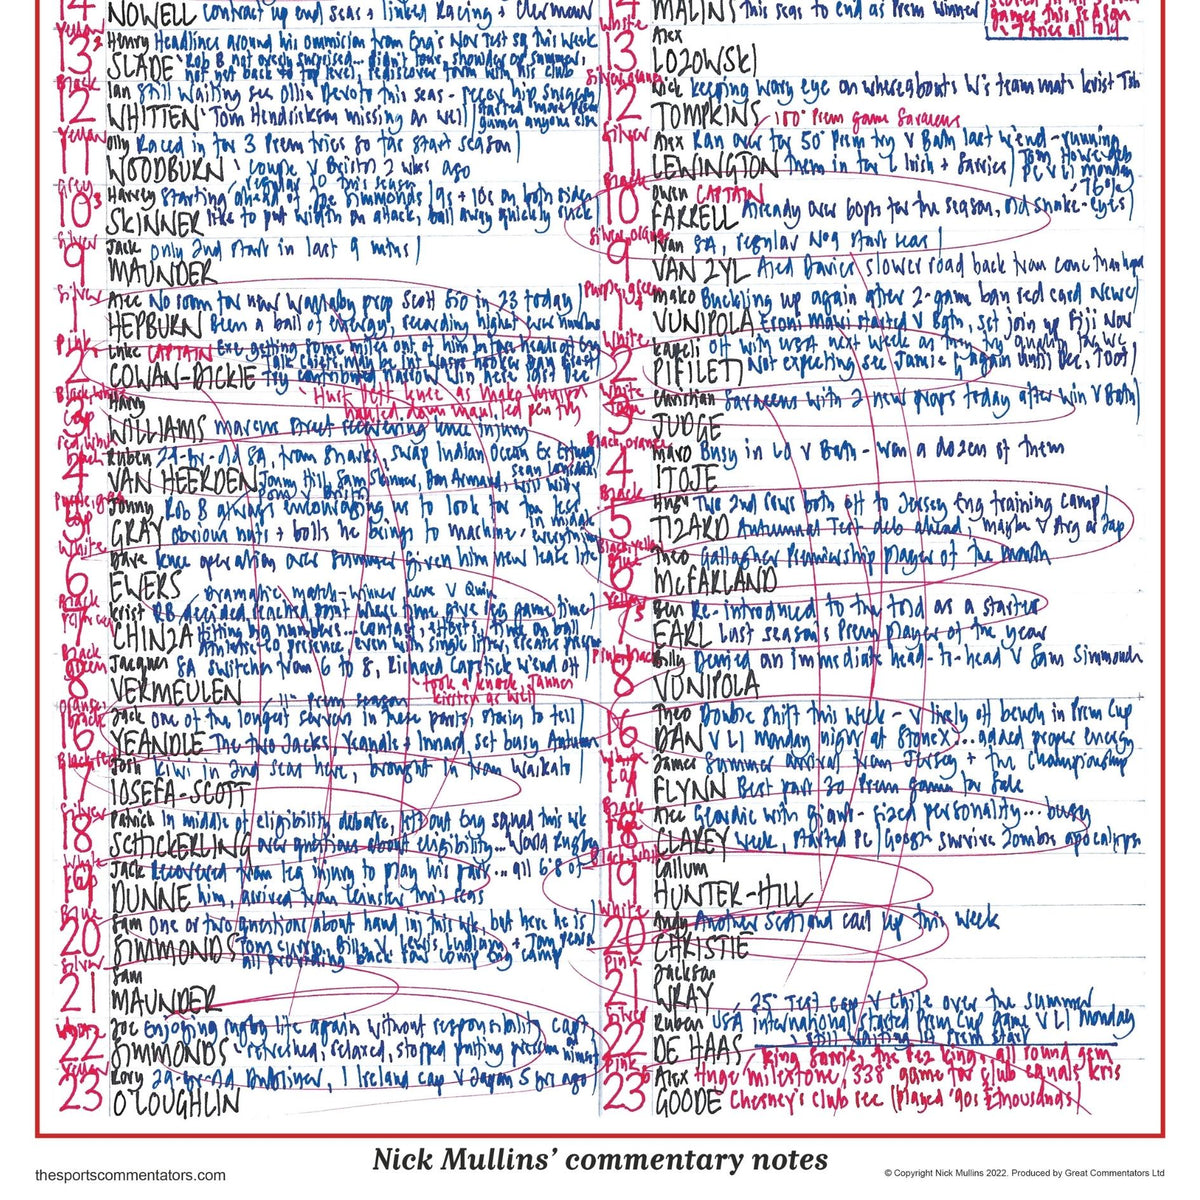 14
NOWELL contract up end seas + linked Racing + Clermont
Yellow
13 Henry Headlines around his ommission from Eng's Nov Test sq this week
SLADE Rob B not overly surprised... didn't tour, shoulder op summer,
not yet back to top level, rediscover form with his club
Black
12 Ian Still waiting see Ollie Devoto this seas - recov hip surgery
WHITTEN Tom Hendrickson missing as well started more Prem
games anyone else
Yellow
11 Olly Raced in for 3 Prem tries so far start season
WOODBURN couple v Bristol 2 wks ago
regular 10 this season
Grey
10 Harvey Starting ahead of Joe Simmonds 9s + 10s on both sides
SKINNER like to put width on attack, ball away quickly ruck
Silver
9 Jack only 2nd start in last 9 mths
MAUNDER
Silver
1 Alec No room for new Wallaby prop Scott Sio in 23 today
HEPBURN Been a ball of energy, recording highest ever numbers
Pink
2 Luke CAPTAIN Exe getting some miles out of him before heads off Eng
COWAN-DICKIE
try contributed narrow win here last Dec
Hurt left knee as Mako Vunipola
hauled down maul, led pen try
Black, white
Cap
3 Harry
WILLIAMS Marcus Street recovering knee injury
red, white
black
4 Ruben 27-yr-old SA, from Sharks, swap Indian Ocean Ex Estuary
VAN HEERDEN Jonny Hill, Sam Skinner, Don Armand, Will Witty
Cap
5 Jonny Rob B always encouraging us to look for
GRAY obvious nuts + bolts he brings to machine, everything
in middle
White
6 Dave knee operation over summer given him new lease life
EWERS
Dramatic match-winner here v Quin
Black
7 Krist RB decided reached point where time give leg game time
CHINZA Hitting big numbers... contact, efforts, time on ball
immense co presence, even with single letter, creates
Black
green
8 Jacques SA switches from 6 to 8, Richard Capstick w'end off
VERMEULEN took a knock, Tanner
as well
11th Prem season
Orange
black
16 Jack one of the longest servan in these parts, stories to tell
YEANDLE The two Jacks, Yeandle + Innard, set busy Autumn
17 Josh Kiwi in 2nd seas here, brought in from Waikato
IOSEFA-SCOTT
Silver
18 Patrick In middle of eligibility debate, left out Eng squad this wk
SCHICKERLING over questions about eligibility... World Rugby
White
Cap
19 Jack Recovered from leg injury to play his part... all 6'8 of
DUNNE him, arrived from Leinster this seas
Blue
20 Sam One or two questions about hand inj this wk, but here he is
SIMMONDS Tom Curry, Billy V, Lewis Ludlam + Tom Pearson
all providing back row comp Eng camp
Silver
21 Sam
MAUNDER
22 Joe Enjoying rugby life again without responsibility capt
SIMMONDS refreshed, relaxed, stopped putting pressure on himself
Yellow
23 Rory 29-yr-old Dubliner, 1 Ireland cap v Japan 5 yrs ago
O'LOUGHLIN
14
MALINS this seas to end as Prem winner
games this season
7 tries all told
White
13 Alex
LOZOWSKI
Silver, orange
12 Nick keeping wary eye on whereabouts W's team mate Krist Tsh
TOMPKINS
100th Prem game Saracens
Silver
11 Alex Ran over for 50th Prem try v Bath last w'end - running
LEWINGTON them in for L Irish + Sarries
v LI Monday
76%
Black
10 Owen CAPTAIN
FARRELL Already over 60pts for the season, old snake-eyes
Silver, orange
9 Ivan SA, regular No9 start seas
VAN ZYL Aled Davies slower road back from conc than hoped
Purple, green
1 Mako Buckling up again after 2-game ban red card Newc
VUNIPOLA Eroni Mawi started v Bath, set join up Fiji Nov
White
2 Kapeli off with USA next week as they try qualify for WC
PIFILETI Not expecting see Jamie G again until Dec, foot
White
3 Christian Saracens with 2 new props today after win v Bath
JUDGE
Black, orange
4 Maro Busy in LO v Bath - won a dozen of them
ITOJE
Black
5 Hugo Two 2nd rows both off to Jersey Eng training camp
TIZARD Autumnal Test deb ahead, maybe v Arg or Jap
Black, Yellow
Blue
6 Theo Gallagher Premiership player of the month
McFARLAND
Yellow
7 Ben Re-introduced to the fold as a starter
EARL Last season's Prem player of the year
8 Billy Denied an immediate head-to-head v Sam Simmonds
VUNIPOLA
16 Theo Double shift this week - v lively off bench in Prem Cup
DAN v LI Monday night at StoneX... added proper energy
Cap
17 James Summer arrival from Jersey + the Championship
FLYNN Best part 20 Prem games for Sale
Black
18 Alec Geordie with giant-sized personality... busy
CLAREY week, started PC Googs survive zombs apocalypse
Black, white
19 Callum
HUNTER-HILL
White
20 Andy Another Scotland call up this week
CHRISTIE
Pink
21 Jackson
WRAY
25th Test cap v Chile over the summer
Silver
22 Ruben USA international, started Prem Cup game v LI Monday
DE HAAS still waiting 1st Prem start
King Goode, the Fez King, all round gem
Pink
23 Alex Huge milestone, 338th game for club equals Kris
GOODE Chesney's club rec (played '90s + thousands)
Nick Mullins' commentary notes
thesportscommentators.com
© Copyright Nick Mullins 2022. Produced by Great Commentators Ltd